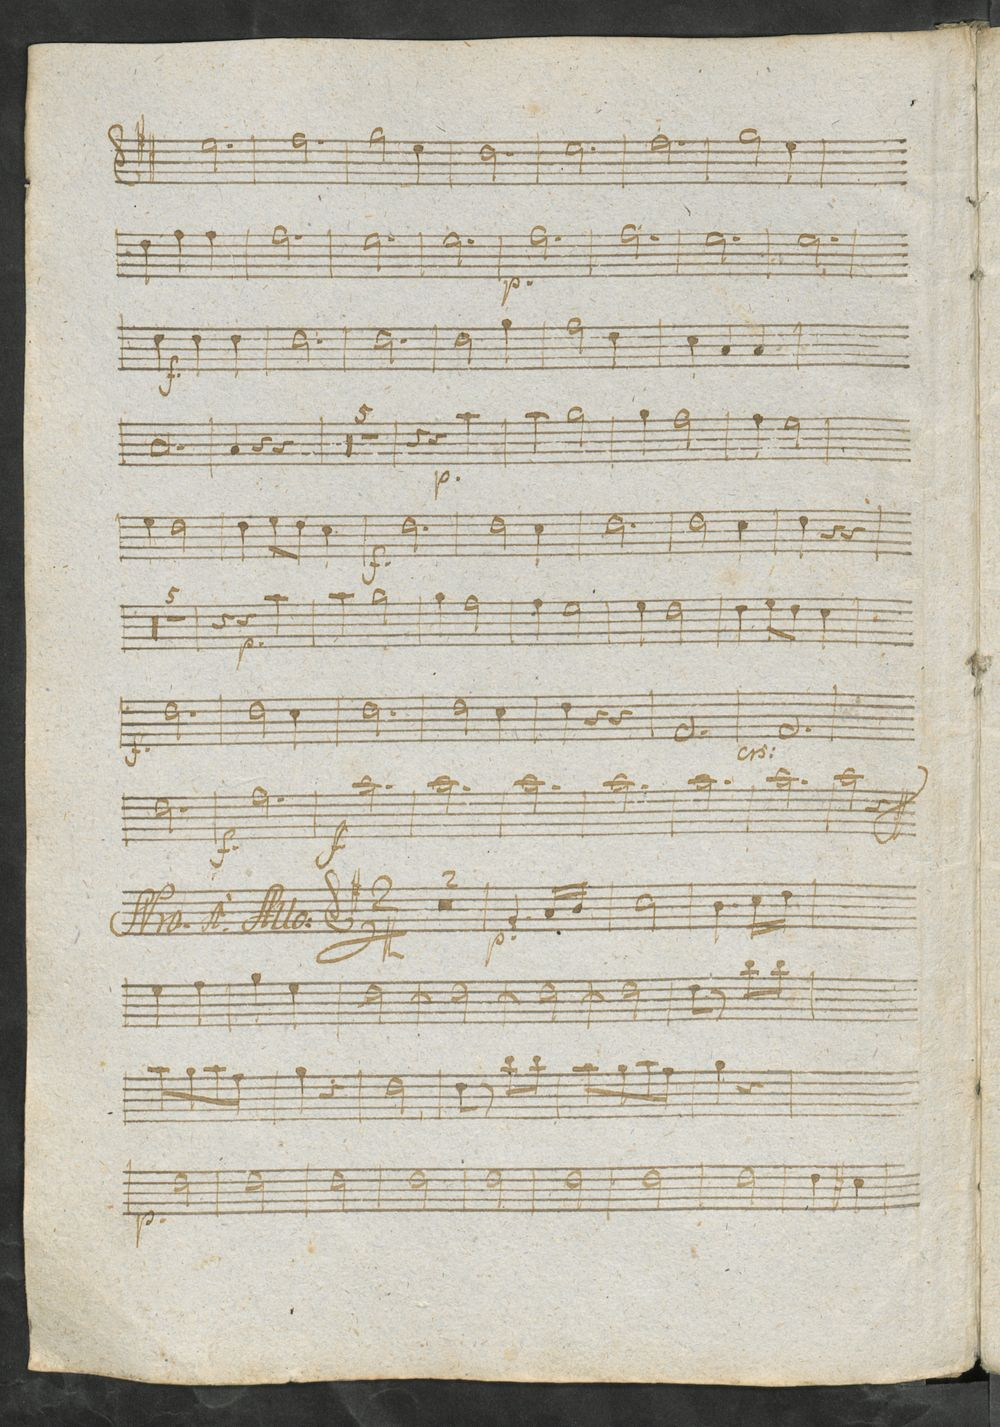 p.
f.
5
p.
f.
5
p.
f.
crs:
f.
f
Nro. 4. Allo. 2/4
2
p.
p.